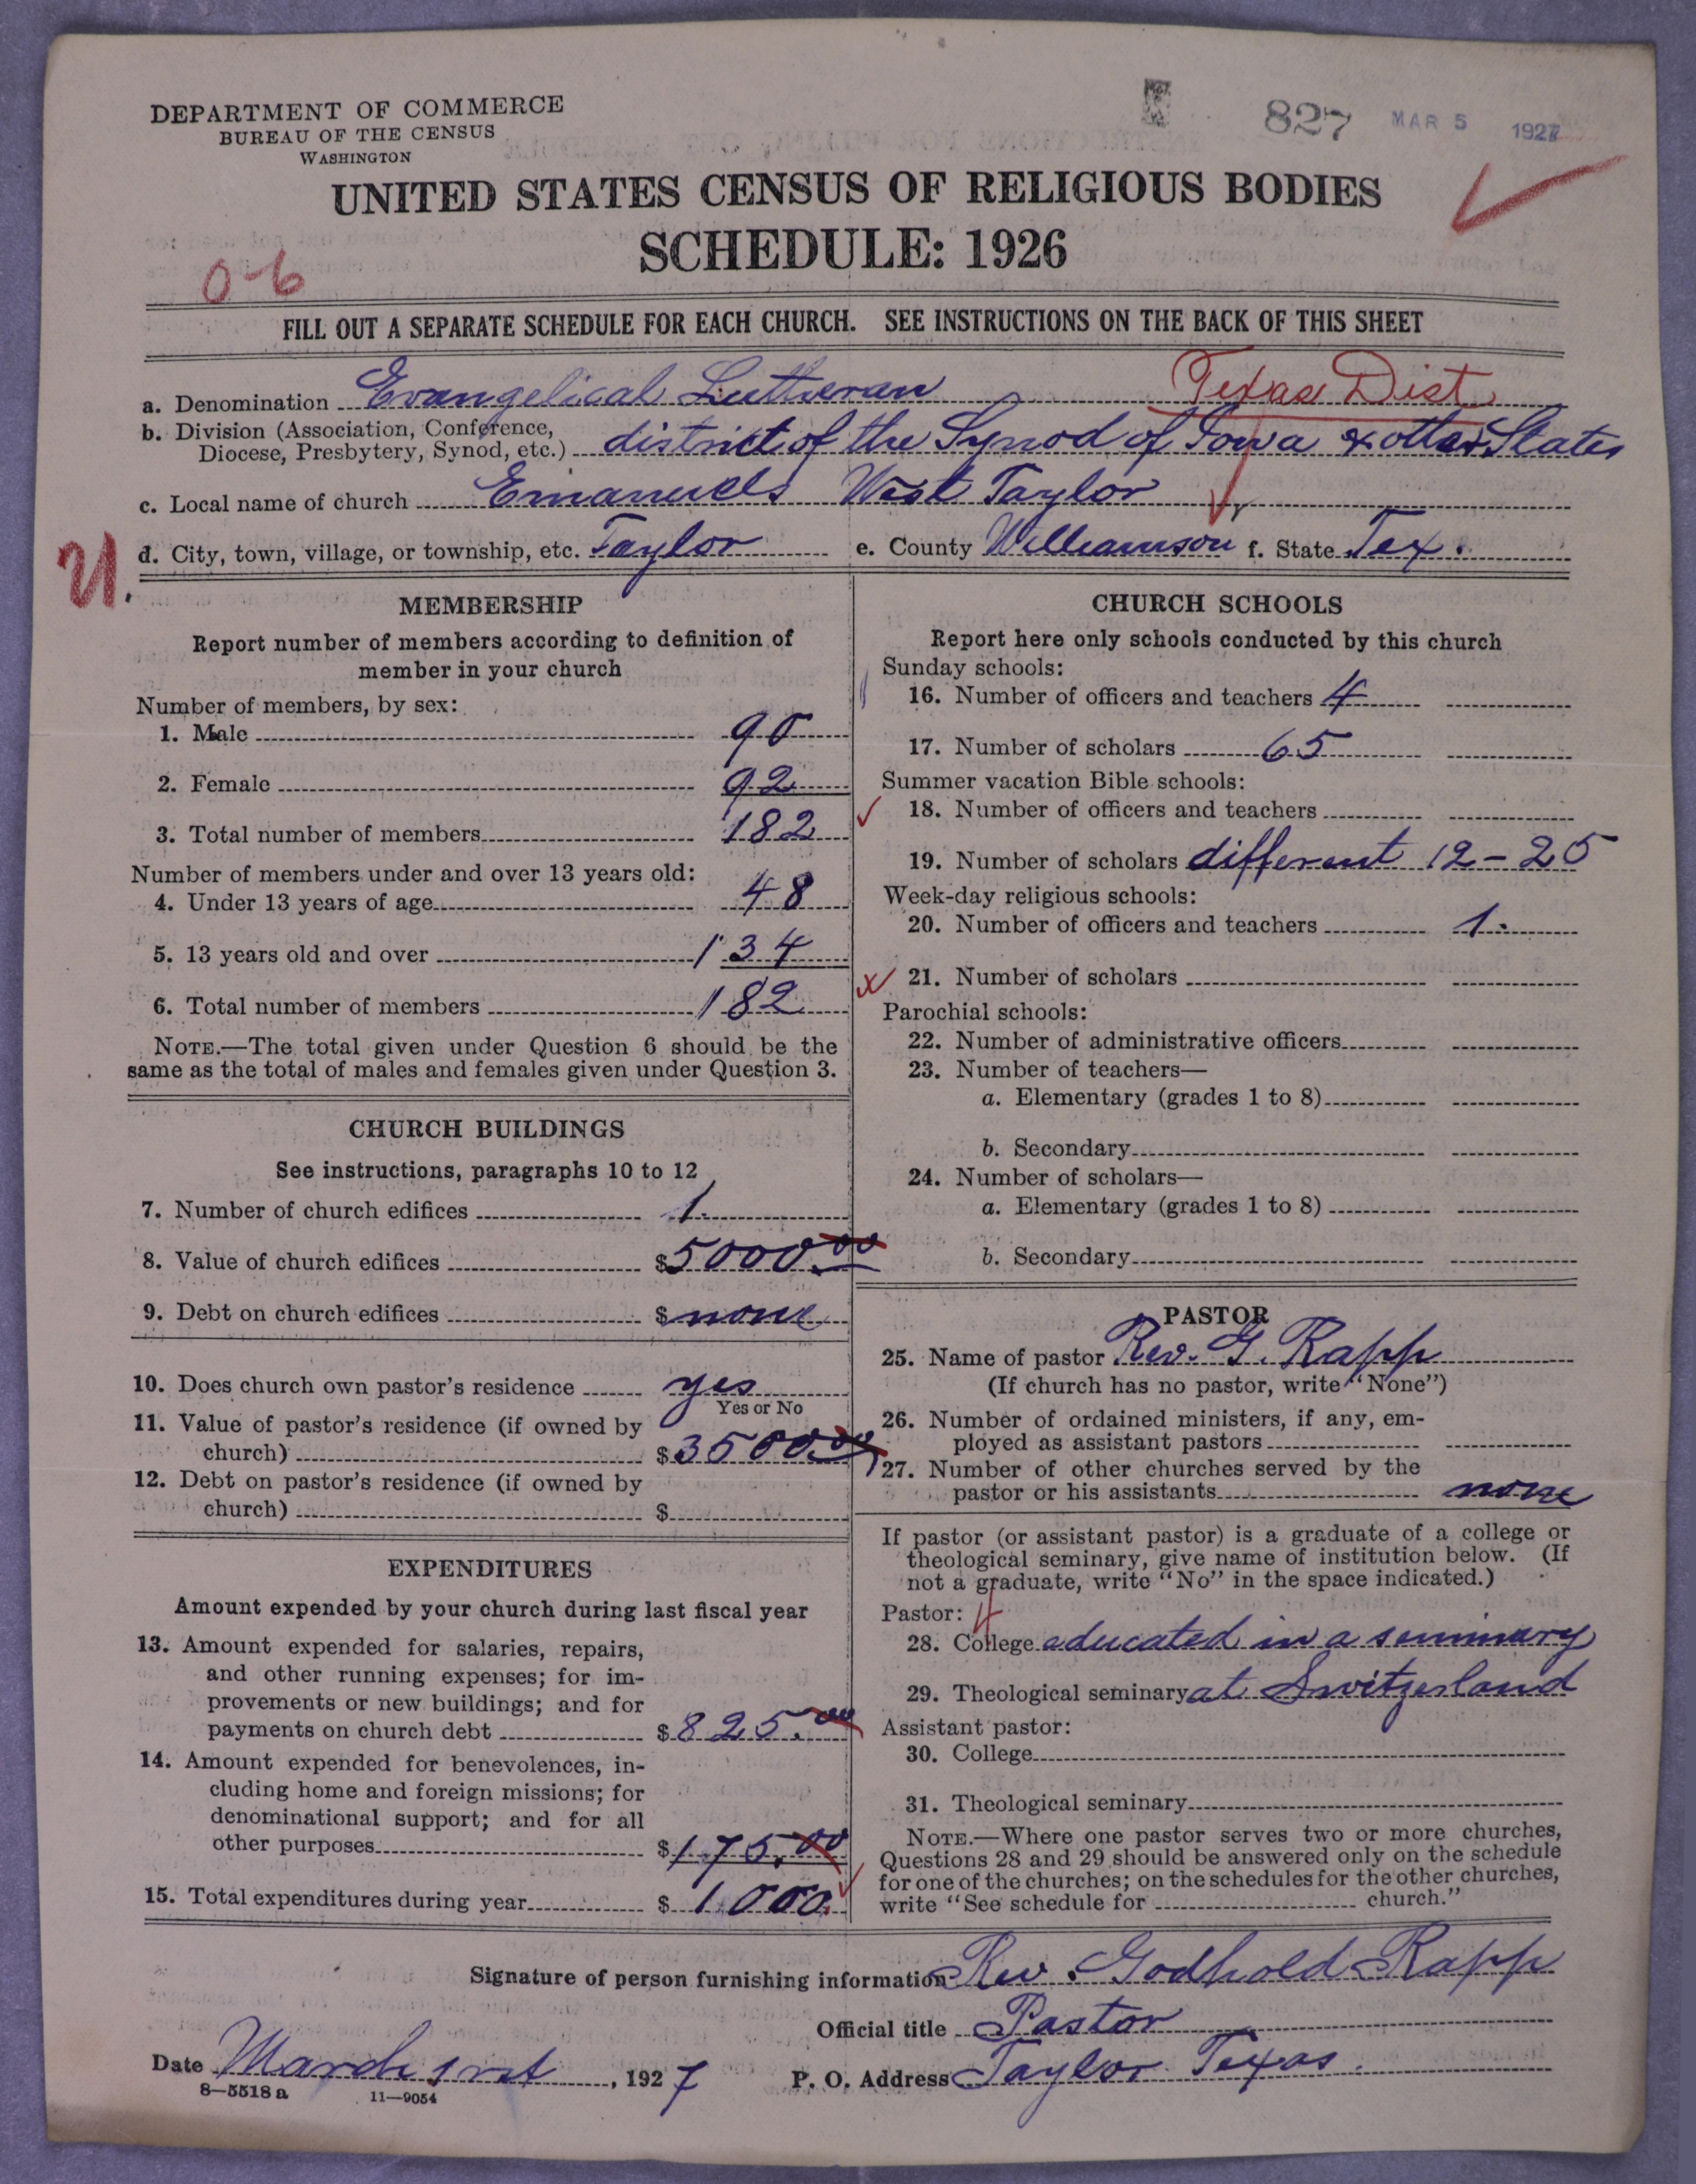 DEPARTMENT OF COMMERCE
BUREAU OF THE CENSUS
WASHINGTON
827 MAR 5 1927
UNITED STATES CENSUS OF RELIGIOUS BODIES
SCHEDULE: 1926
0-6
FILL OUT A SEPARATE SCHEDULE FOR EACH CHURCH. SEE INSTRUCTIONS ON THE BACK OF THIS SHEET
a. Denomination Evangelical Lutheran Texas Dist.
b. Division (Association, Conference,
Diocese, Presbytery, Synod, etc.) district of the Synod of Iowa & other States
c. Local name of church Emanuels West Taylor
d. City, town, village, or township, etc. Taylor e. County Williamson f. State Tex.
21.
MEMBERSHIP
Report number of members according to definition of
member in your church
Number of members, by sex:
1. Male 90
2. Female 92
3. Total number of members 182
Number of members under and over 13 years old:
4. Under 13 years of age 48
5. 13 years old and over 134
6. Total number of members 182
NOTE.—The total given under Question 6 should be the
same as the total of males and females given under Question 3.
CHURCH BUILDINGS
See instructions, paragraphs 10 to 12
7. Number of church edifices 1.
8. Value of church edifices $5000.00
9. Debt on church edifices $ none
10. Does church own pastor's residence yes
Yes or No
11. Value of pastor's residence (if owned by
church) $3500.00
12. Debt on pastor's residence (if owned by
church) $
EXPENDITURES
Amount expended by your church during last fiscal year
13. Amount expended for salaries, repairs,
and other running expenses; for im-
provements or new buildings; and for
payments on church debt $825.00
14. Amount expended for benevolences, in-
cluding home and foreign missions; for
denominational support; and for all
other purposes $175.00
15. Total expenditures during year $1000.
CHURCH SCHOOLS
Report here only schools conducted by this church
Sunday schools:
16. Number of officers and teachers 4
17. Number of scholars 65
Summer vacation Bible schools:
18. Number of officers and teachers
19. Number of scholars different 12-25
Week-day religious schools:
20. Number of officers and teachers 1.
21. Number of scholars
Parochial schools:
22. Number of administrative officers
23. Number of teachers—
a. Elementary (grades 1 to 8)
b. Secondary
24. Number of scholars—
a. Elementary (grades 1 to 8)
b. Secondary
PASTOR
25. Name of pastor Rev. G. Rapp
(If church has no pastor, write "None")
26. Number of ordained ministers, if any, em-
ployed as assistant pastors
27. Number of other churches served by the
pastor or his assistants none
If pastor (or assistant pastor) is a graduate of a college or
theological seminary, give name of institution below. (If
not a graduate, write "No" in the space indicated.)
Pastor: 4
28. College aducated in a seminary
29. Theological seminary at Switzerland
Assistant pastor:
30. College
31. Theological seminary
NOTE.—Where one pastor serves two or more churches,
Questions 28 and 29 should be answered only on the schedule
for one of the churches; on the schedules for the other churches,
write "See schedule for church."
Signature of person furnishing information Rev. Godhold Rapp
Official title Pastor
Date March 1rst, 1927 P. O. Address Taylor Texas.
8—5518 a 11—9054